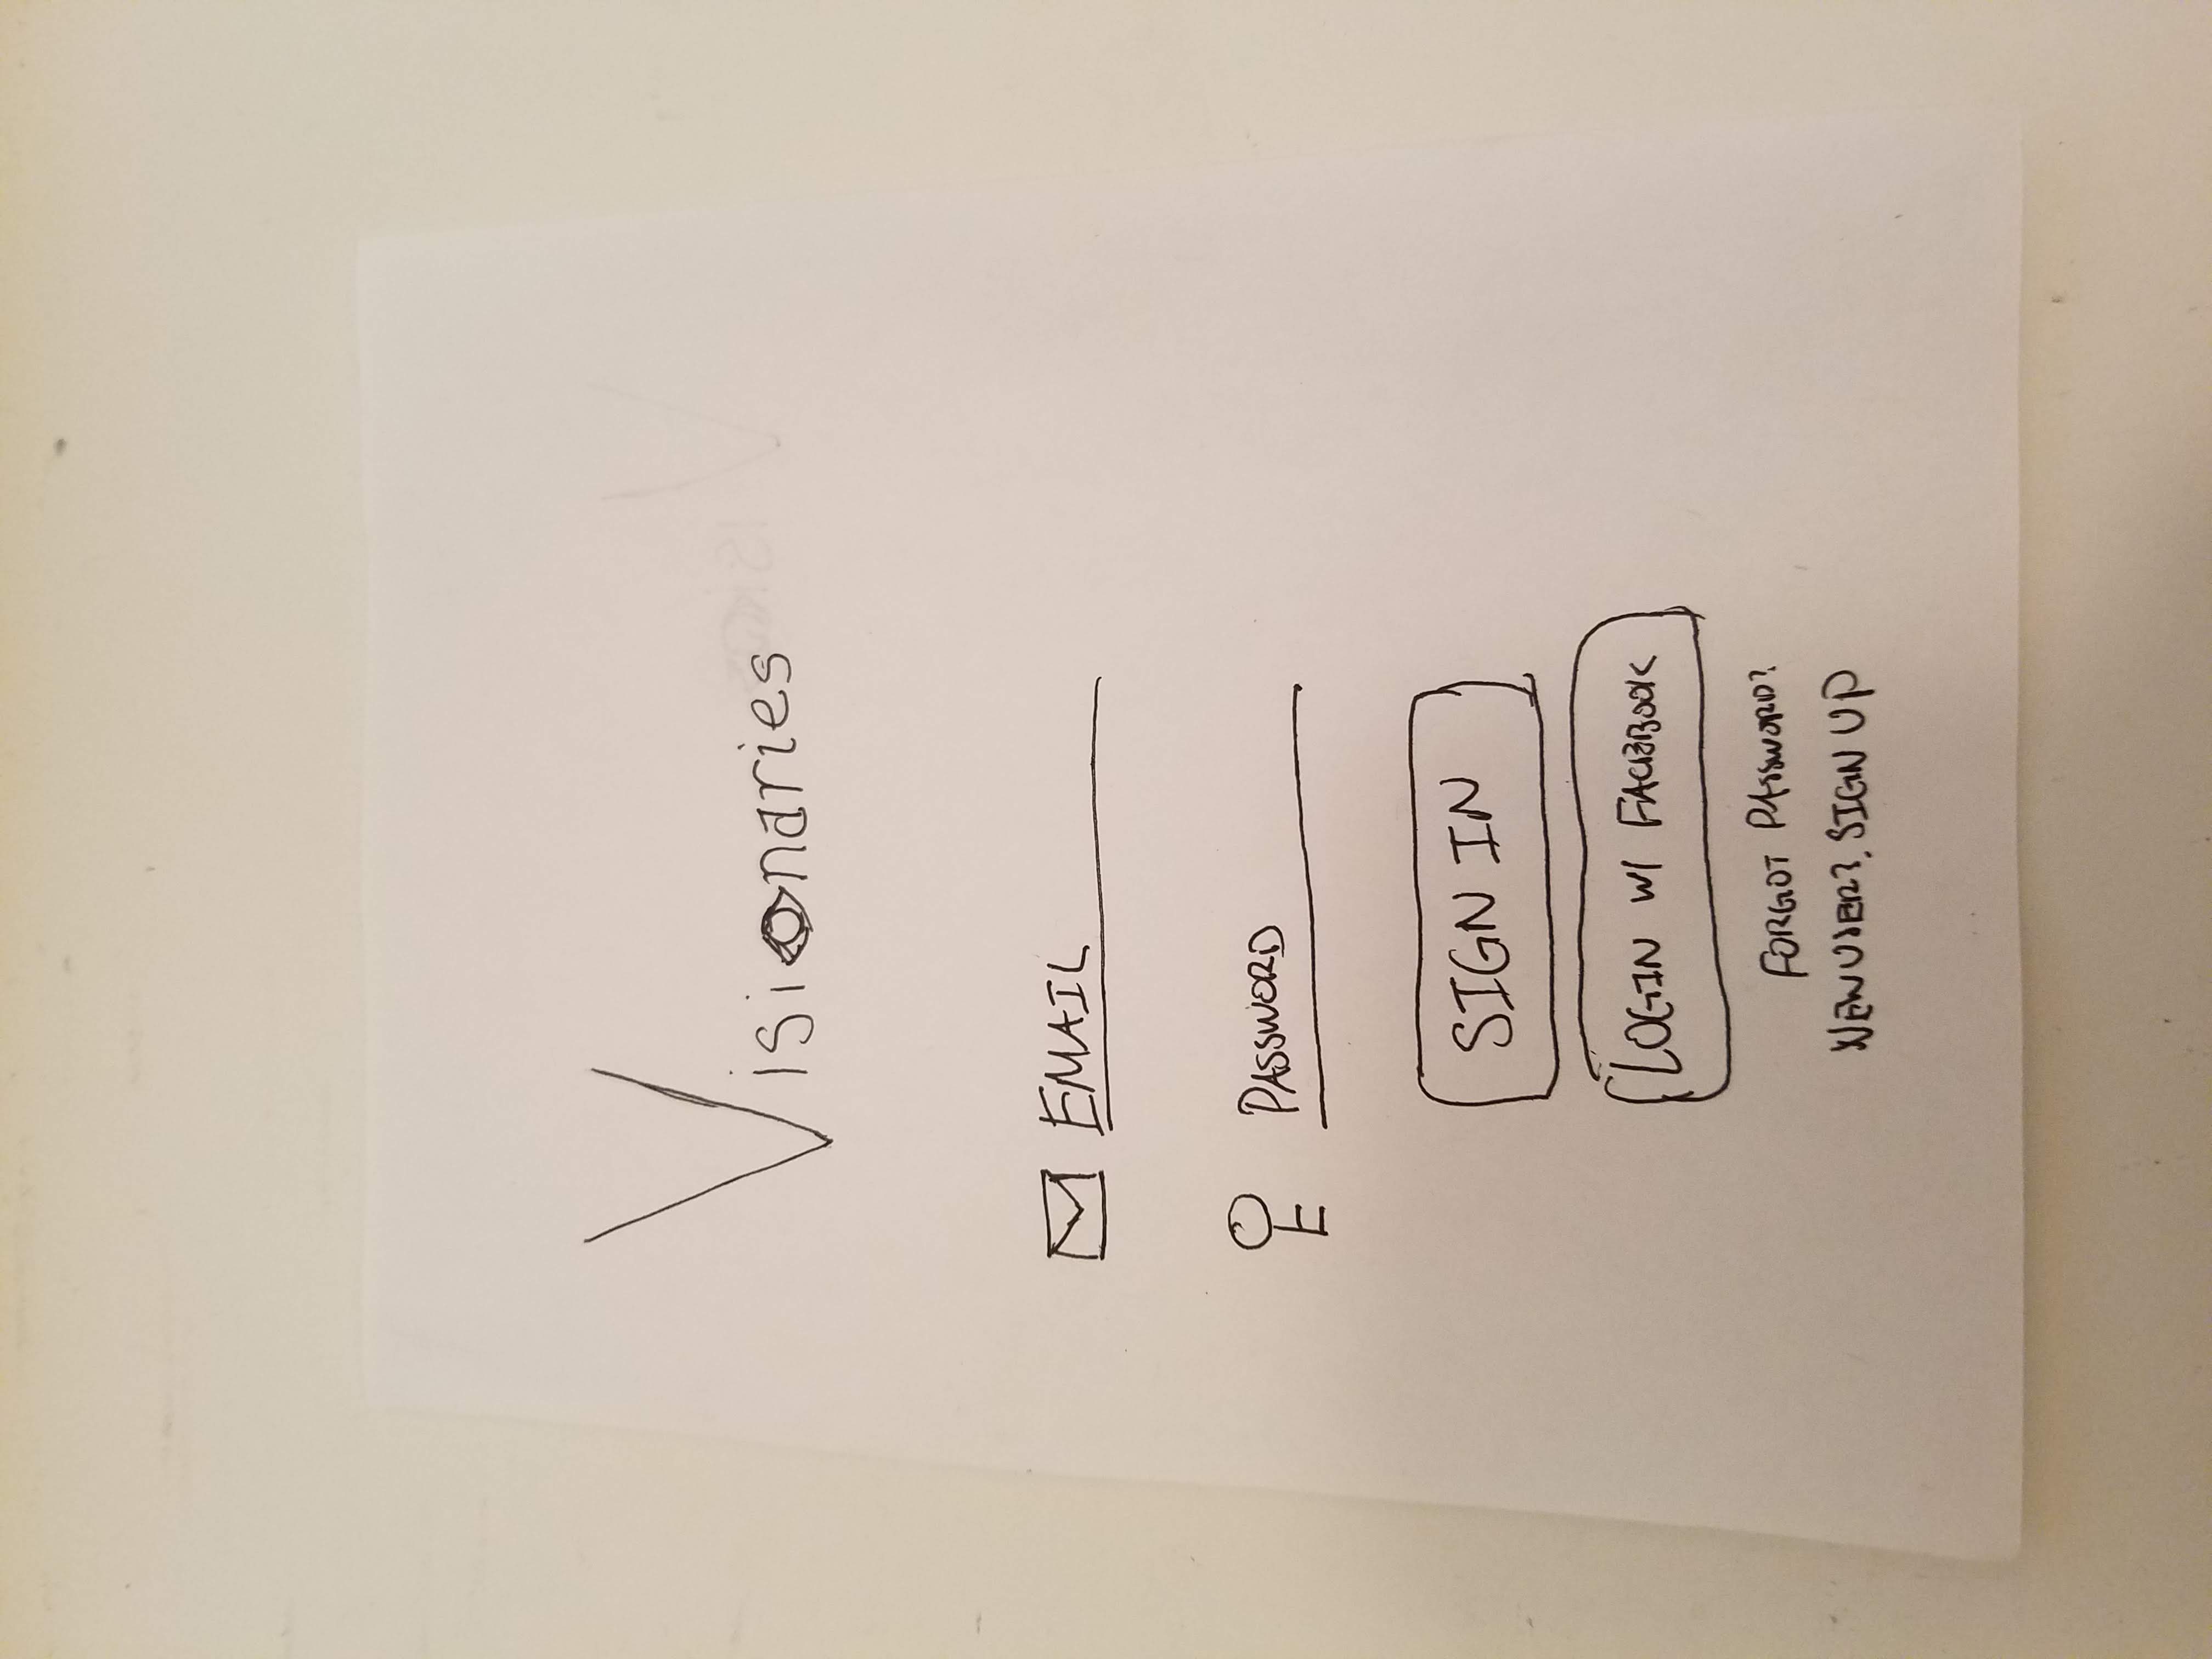 Visionaries
EMAIL
PASSWORD
SIGN IN
LOGIN W/ FACEBOOK
FORGOT PASSWORD?
NEW USER? SIGN UP